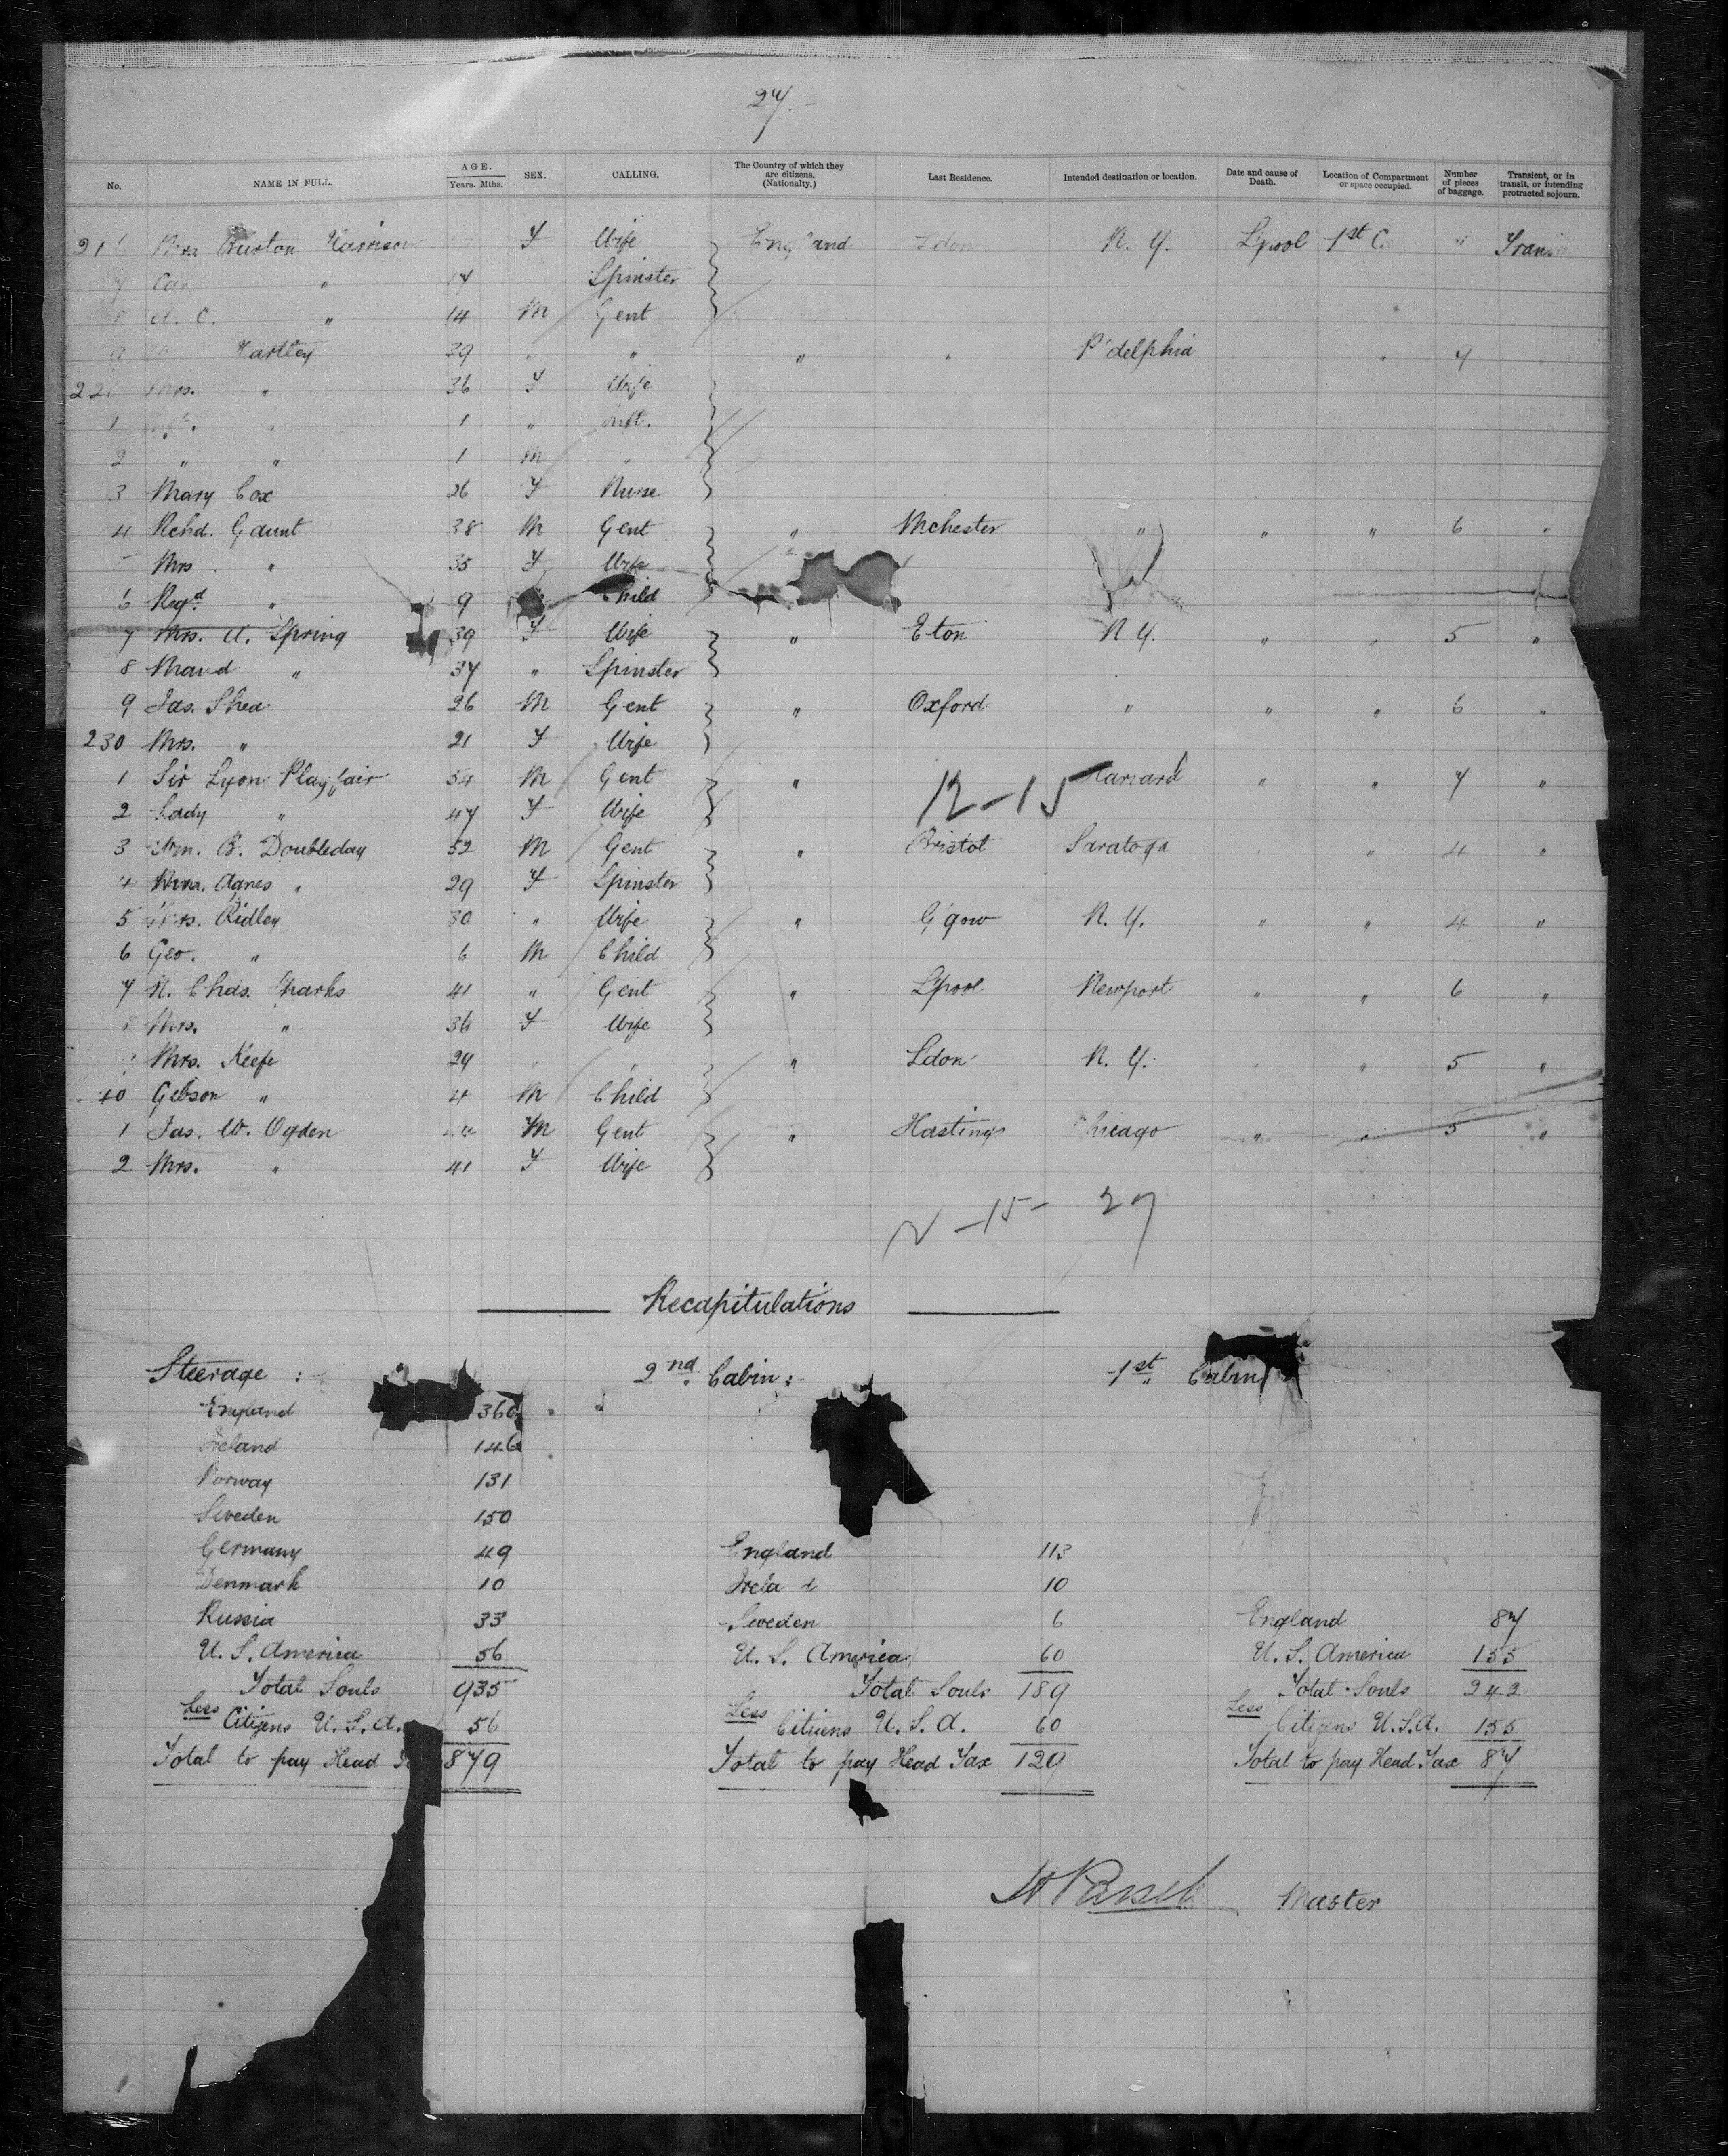 27.-
No. NAME IN FULL. AGE. Years. Mths. SEX. CALLING. The Country of which they are citizens. (Nationalty.) Last Residence. Intended destination or location. Date and cause of Death. Location of Compartment or space occupied. Number of pieces of baggage. Transient, or in transit, or intending protracted sojourn.
21 Burton Harrison F Wife England Ldon N. Y. L'pool 1st
7 " 17 Spinster
A. C. " 14 M Gent
Hartley 39 " " " P'delphia " 9
22 Mrs. " 36 F Wife
1 " 1 " Inft.
2 " " 1 M "
3 Mary Cox 26 F Nurse
4 Rchd. Gaunt 38 M Gent " Mchester " " " 6 "
Mrs " 35 F Wife
6 Regd. " 9 Child
7 Mrs. A. Spring 39 F Wife " Eton N. Y. " " 5 "
8 Maud " 37 " Spinster
9 Jas. Shea 26 M Gent " Oxford " " " 6 "
230 Mrs. " 21 F Wife
1 Sir Lyon Playfair 54 M Gent " 12-15 Harvard " " 7 "
2 Lady " 47 F Wife
3 Wm. B. Doubleday 52 M Gent " Bristol Saratoga " 4 "
4 Agnes " 29 F Spinster
5 Mrs. Ridley 30 " Wife " G'gow N. Y. " " 4 "
6 Geo. " 6 M Child
7 N. Chas. Sparks 41 " Gent " L'pool Newport " " 6 "
8 Mrs. " 36 F Wife
Mrs. Keefe 24 " " Ldon N. Y. " 5 "
40 Gibson " 4 M Child
1 Jas. W. Ogden M Gent " Hastings Chicago " " 5 "
2 Mrs. " 41 F Wife
-15- 27
Recapitulations
Steerage : 2nd Cabin : 1st Cabin
England 360
Ireland 146
Norway 131
Sweden 150
Germany 49 England 113
Denmark 10 Irela d 10
Russia 33 Sweden 6 England 87
U. S. America 56 U. S. America 60 U. S. America 155
Total Souls 935 Total Souls 189 Total Souls 242
Less Citizens U. S. A. 56 Less Citizens U. S. A. 60 Less Citizens U.S.A. 155
Total to pay Head 879 Total to pay Head Tax 129 Total to pay Head Tax 87
Master